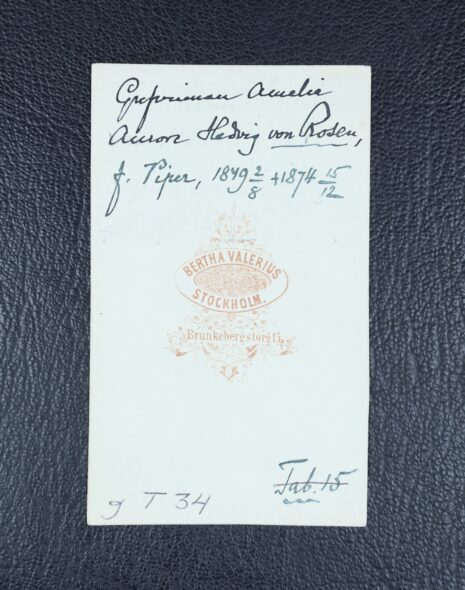 Grefvinnan Amelie
Aurora Hedvig von Rosen,
f. Piper, 1849 2/8 +1874 15/12
BERTHA VALERIUS
STOCKHOLM.
Brunkebergstorg 15
Tab. 15
g T 34